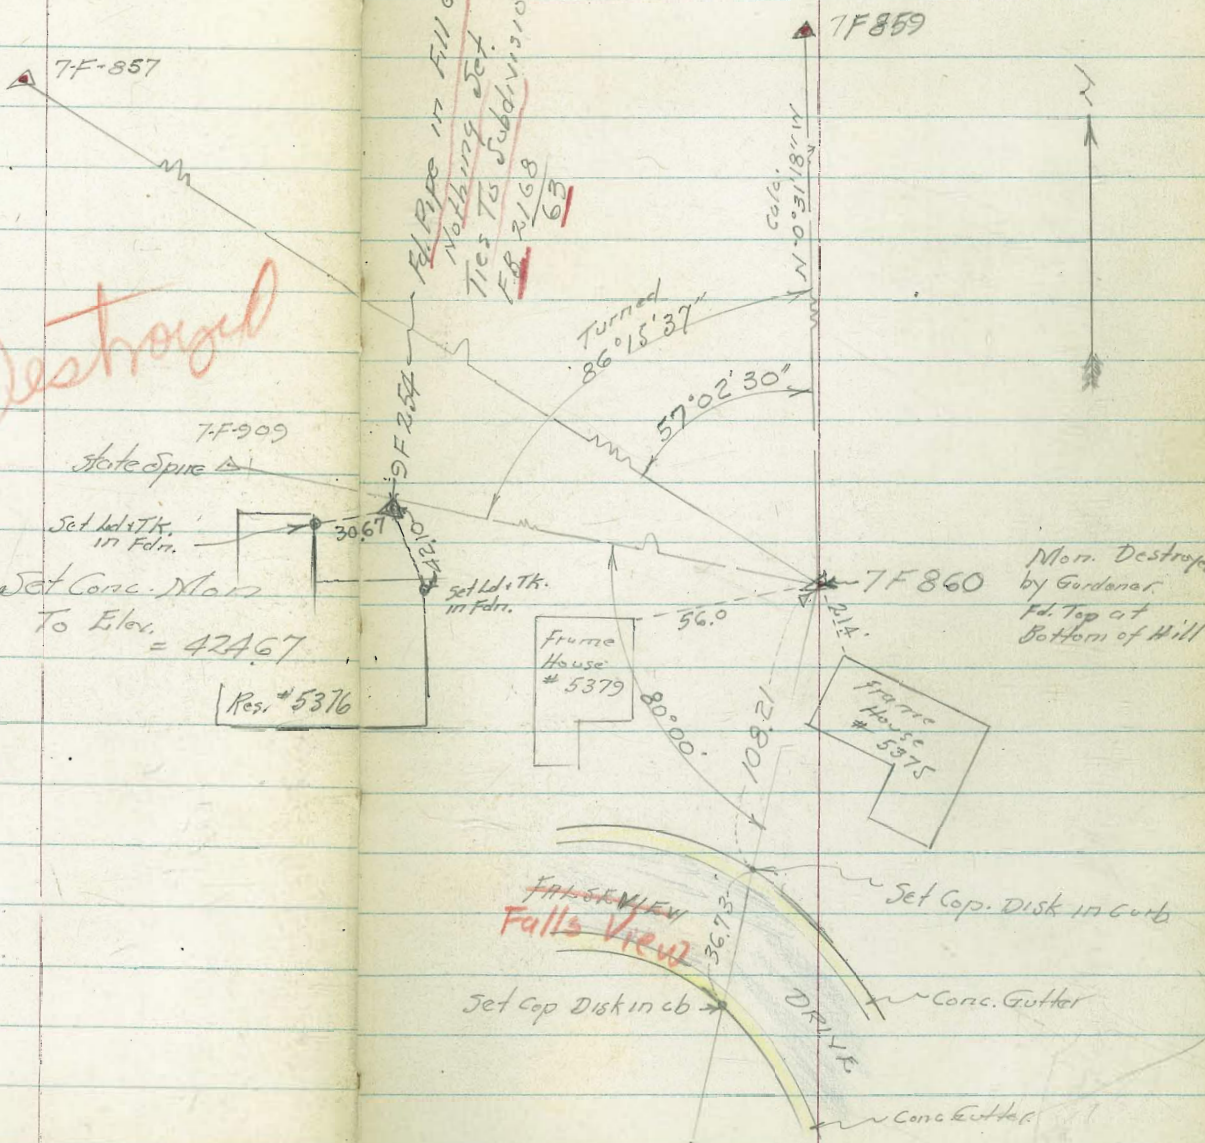 7-F-857
7F859
N
Fd. Pipe in Fill
Nothing Set.
Ties To Subdivision
FB 2168
63
Calc.
N-0°31'18"W
Turned
86°15'37"
57°02'30"
Destroyed
9F254
7-F-909
State Spire
Set Ld & Tk.
in Fdn.
30.67
42.10
Set Ld & Tk.
in Fdn.
Set Conc. Mon
To Elev.
= 424.67
Res. # 5376
Frame
House
# 5379
56.0
7F860
21.4
Mon. Destroye
by Gardener.
Fd. Top at
Bottom of Hill
Frame
House
# 5375
80°00'
108.21
FALSEVIEW
Falls View
DRIVE
36.73
Set Cop. Disk in Curb
Set Cop Disk in cb
Conc. Gutter
Conc Gutter